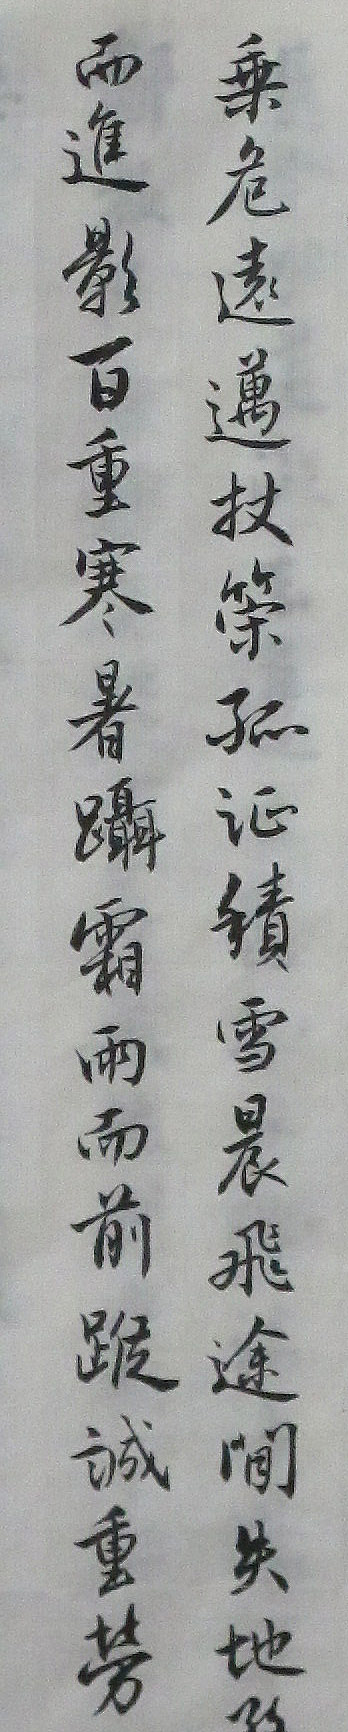 乗危遠邁杖策孤征積雪晨飛途間失地
而進影百重寒暑躡霜雨而前蹤誠重勞